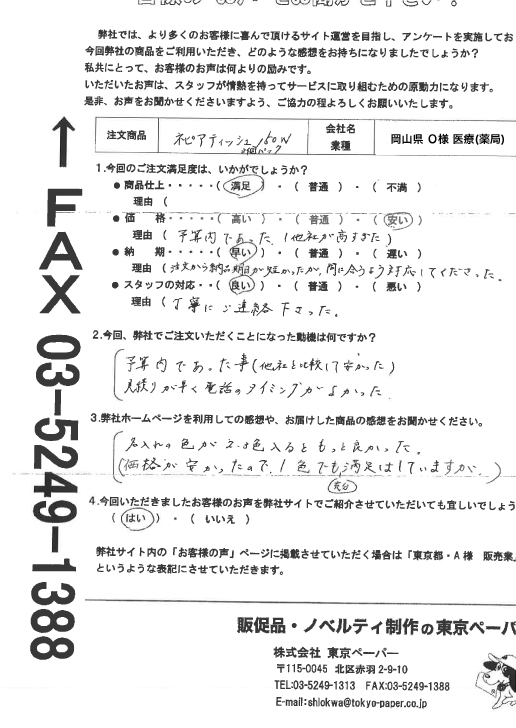 弊社では、より多くのお客様に喜んで頂けるサイト運営を目指し、アンケートを実施してお
今回弊社の商品をご利用いただき、どのような感想をお持ちになりましたでしょうか?
私共にとって、お客様のお声は何よりの励みです。
いただいたお声は、スタッフが情熱を持ってサービスに取り組むための原動力になります。
是非、お声をお聞かせくださいますよう、ご協力の程よろしくお願いいたします。
注文商品 ネピアティッシュ150W 会社名 岡山県 O様 医療(薬局)
2個パック 業種
1.今回のご注文満足度は、いかがでしょうか?
●商品仕上・・・・・( 満足 )・( 普通 )・( 不満 )
理由 (
●価 格・・・・・( 高い )・( 普通 )・( 安い )
理由 ( 予算内であった。(他社が高すぎた)
●納 期・・・・・( 早い )・( 普通 )・( 遅い )
理由 (注文から納品期日が短かったが、間に合うよう対応してくださった。
●スタッフの対応・・( 良い )・( 普通 )・( 悪い )
理由 ( 丁寧にご連絡下さった。
2.今回、弊社でご注文いただくことになった動機は何ですか?
予算内であった事(他社と比較して安かった)
見積りが早く電話のタイミングがよかった
3.弊社ホームページを利用しての感想や、お届けした商品の感想をお聞かせください。
名入れの色が2、3色入るともっと良かった。
(価格が安かったので、1色でも満足はしていますが。)
充分
4.今回いただきましたお客様のお声を弊社サイトでご紹介させていただいても宜しいでしょう
( はい )・( いいえ )
弊社サイト内の「お客様の声」ページに掲載させていただく場合は「東京都・A様 販売業」
というような表記にさせていただきます。
↑FAX 03-5249-1388
販促品・ノベルティ制作の東京ペーパ
株式会社 東京ペーパー
〒115-0045 北区赤羽2-9-10
TEL:03-5249-1313 FAX:03-5249-1388
E-mail:shiokwa@tokyo-paper.co.jp